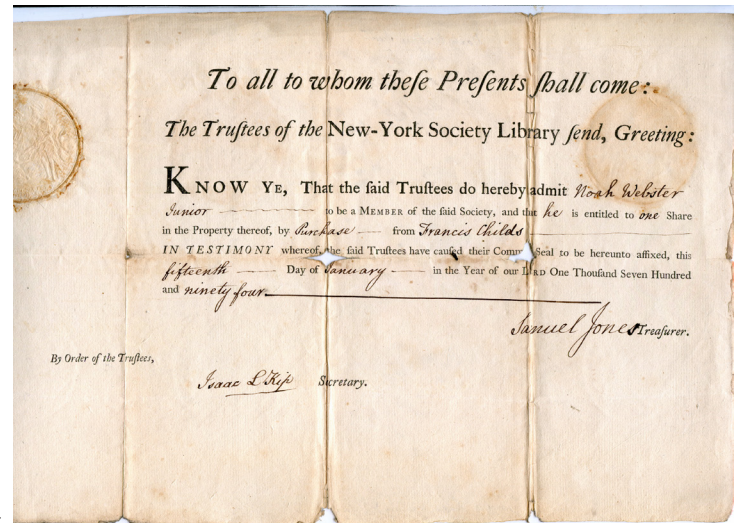 To all to whom theſe Preſents ſhall come:
The Truſtees of the New-York Society Library ſend, Greeting:
KNOW YE, That the ſaid Truſtees do hereby admit Noah Webster
Junior to be a MEMBER of the ſaid Society, and that he is entitled to one Share
in the Property thereof, by Purchase from Francis Childs
IN TESTIMONY whereof, the ſaid Truſtees have cauſed their Common Seal to be hereunto affixed, this
fifteenth Day of January in the Year of our LORD One Thouſand Seven Hundred
and ninety four
Samuel Jones Treaſurer.
By Order of the Truſtees,
Isaac L Kip Secretary.